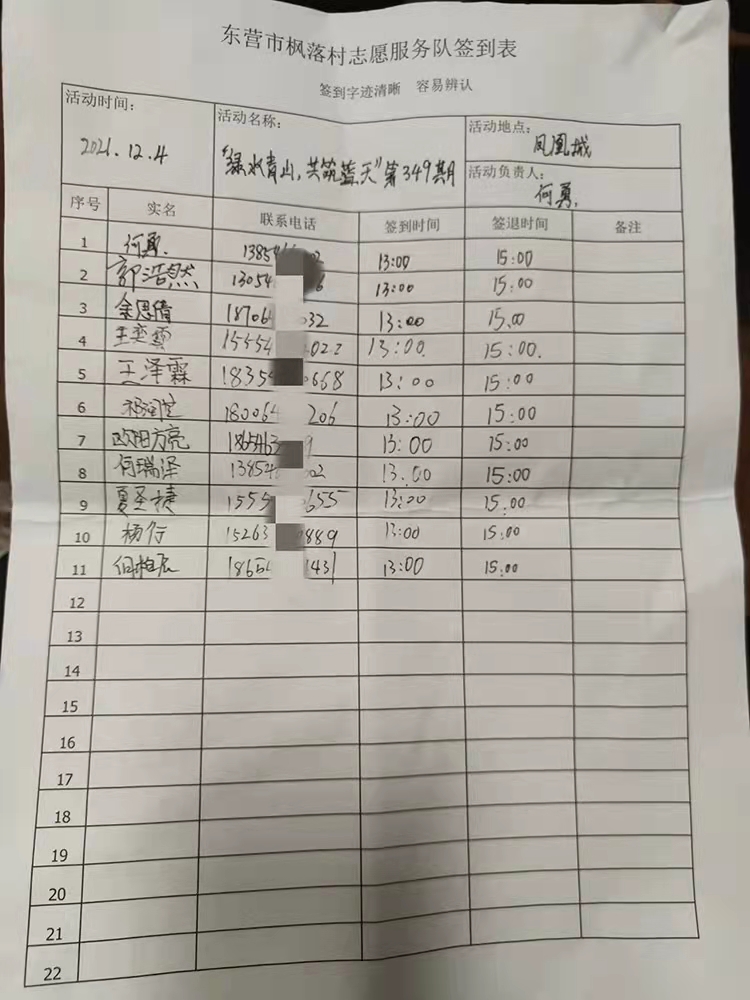 东营市枫落村志愿服务队签到表
签到字迹清晰 容易辨认
活动时间: 2021.12.4 活动名称: "绿水青山,共筑蓝天"第349期 活动地点: 凤凰城
活动负责人: 何勇
序号 实名 联系电话 签到时间 签退时间 备注
1 何勇 1385 02 13:00 15:00
2 郭浩然 13054 6 13:00 15:00
3 余思倩 18706 032 13:00 15.00
4 王奕 15554 022 13:00. 15:00.
5 王泽霖 18354 0668 13:00 15:00
6 18006 206 13:00 15:00
7 欧阳方亮 186546 9 13:00 15:00
8 何瑞泽 13854 02 13.00 15:00
9 夏圣捷 1555 655 13:00 15.00
10 杨行 15263 889 13:00 15:00
11 1865 1431 13:00 15:00
12
13
14
15
16
17
18
19
20
21
22